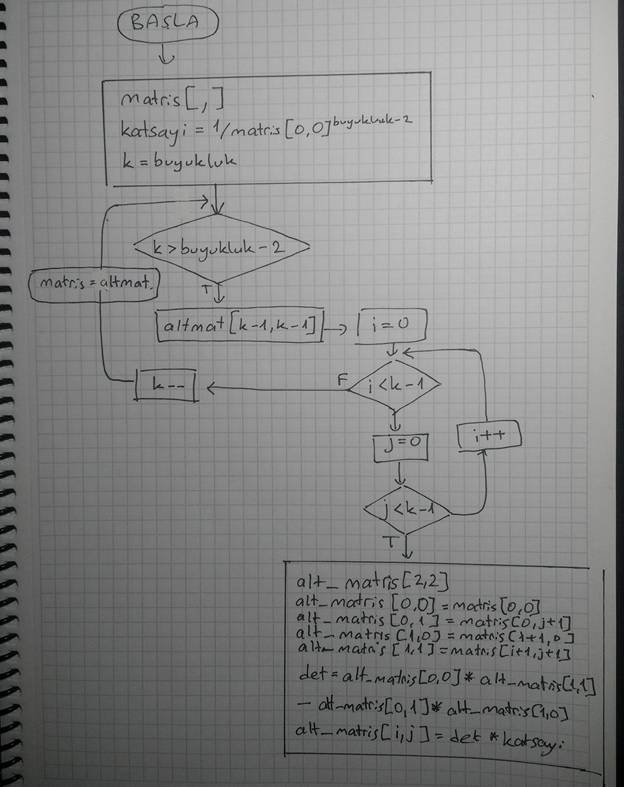 BAŞLA
matris[,]
katsayi = 1/matris[0,0]^buyukluk-2
k = buyukluk
k > buyukluk - 2
matris = altmat.
T
altmat[k-1,k-1]
i=0
F
i<k-1
k--
j=0
i++
j<k-1
T
alt_matris[2,2]
alt_matris[0,0]=matris[0,0]
alt_matris[0,1]=matris[0,j+1]
alt_matris[1,0]=matris[i+1,0]
alt_matris[1,1]=matris[i+1,j+1]
det=alt_matris[0,0]* alt_matris[1,1]
- alt_matris[0,1]* alt_matris[1,0]
alt_matris[i,j]=det * katsayi